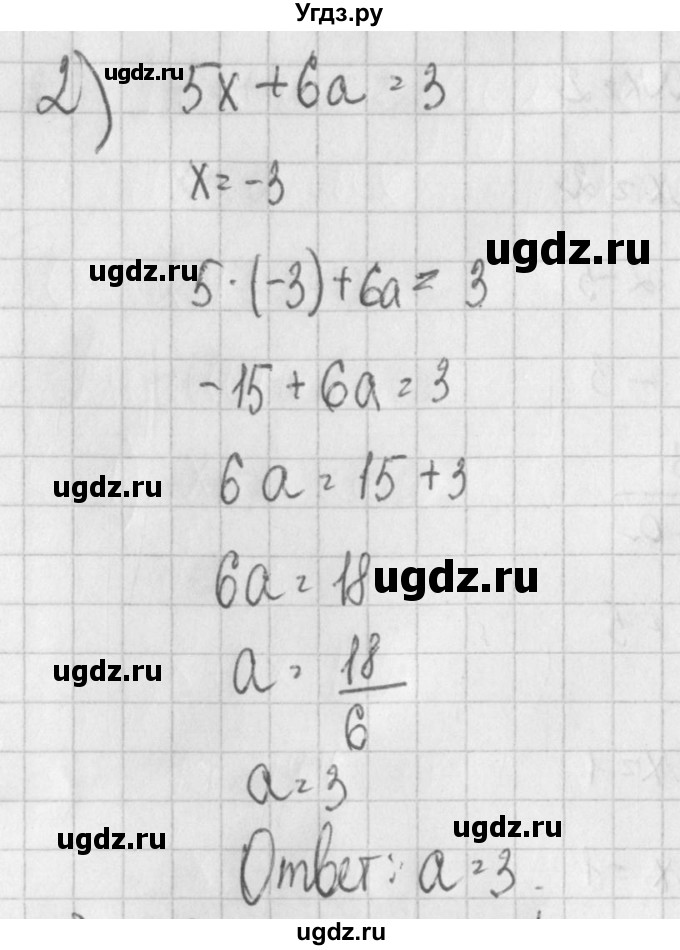 Угдз.ру
2) 5x + 6a = 3
ugdz.ru
x = -3
ugdz.ru
ugdz.ru
5·(-3) + 6a = 3
-15 + 6a = 3
6a = 15 + 3
ugdz.ru
6a = 18
ugdz.ru
a = 18/6
ugdz.ru
a = 3
ugdz.ru
ugdz.ru
Ответ: a = 3.
ugdz.ru